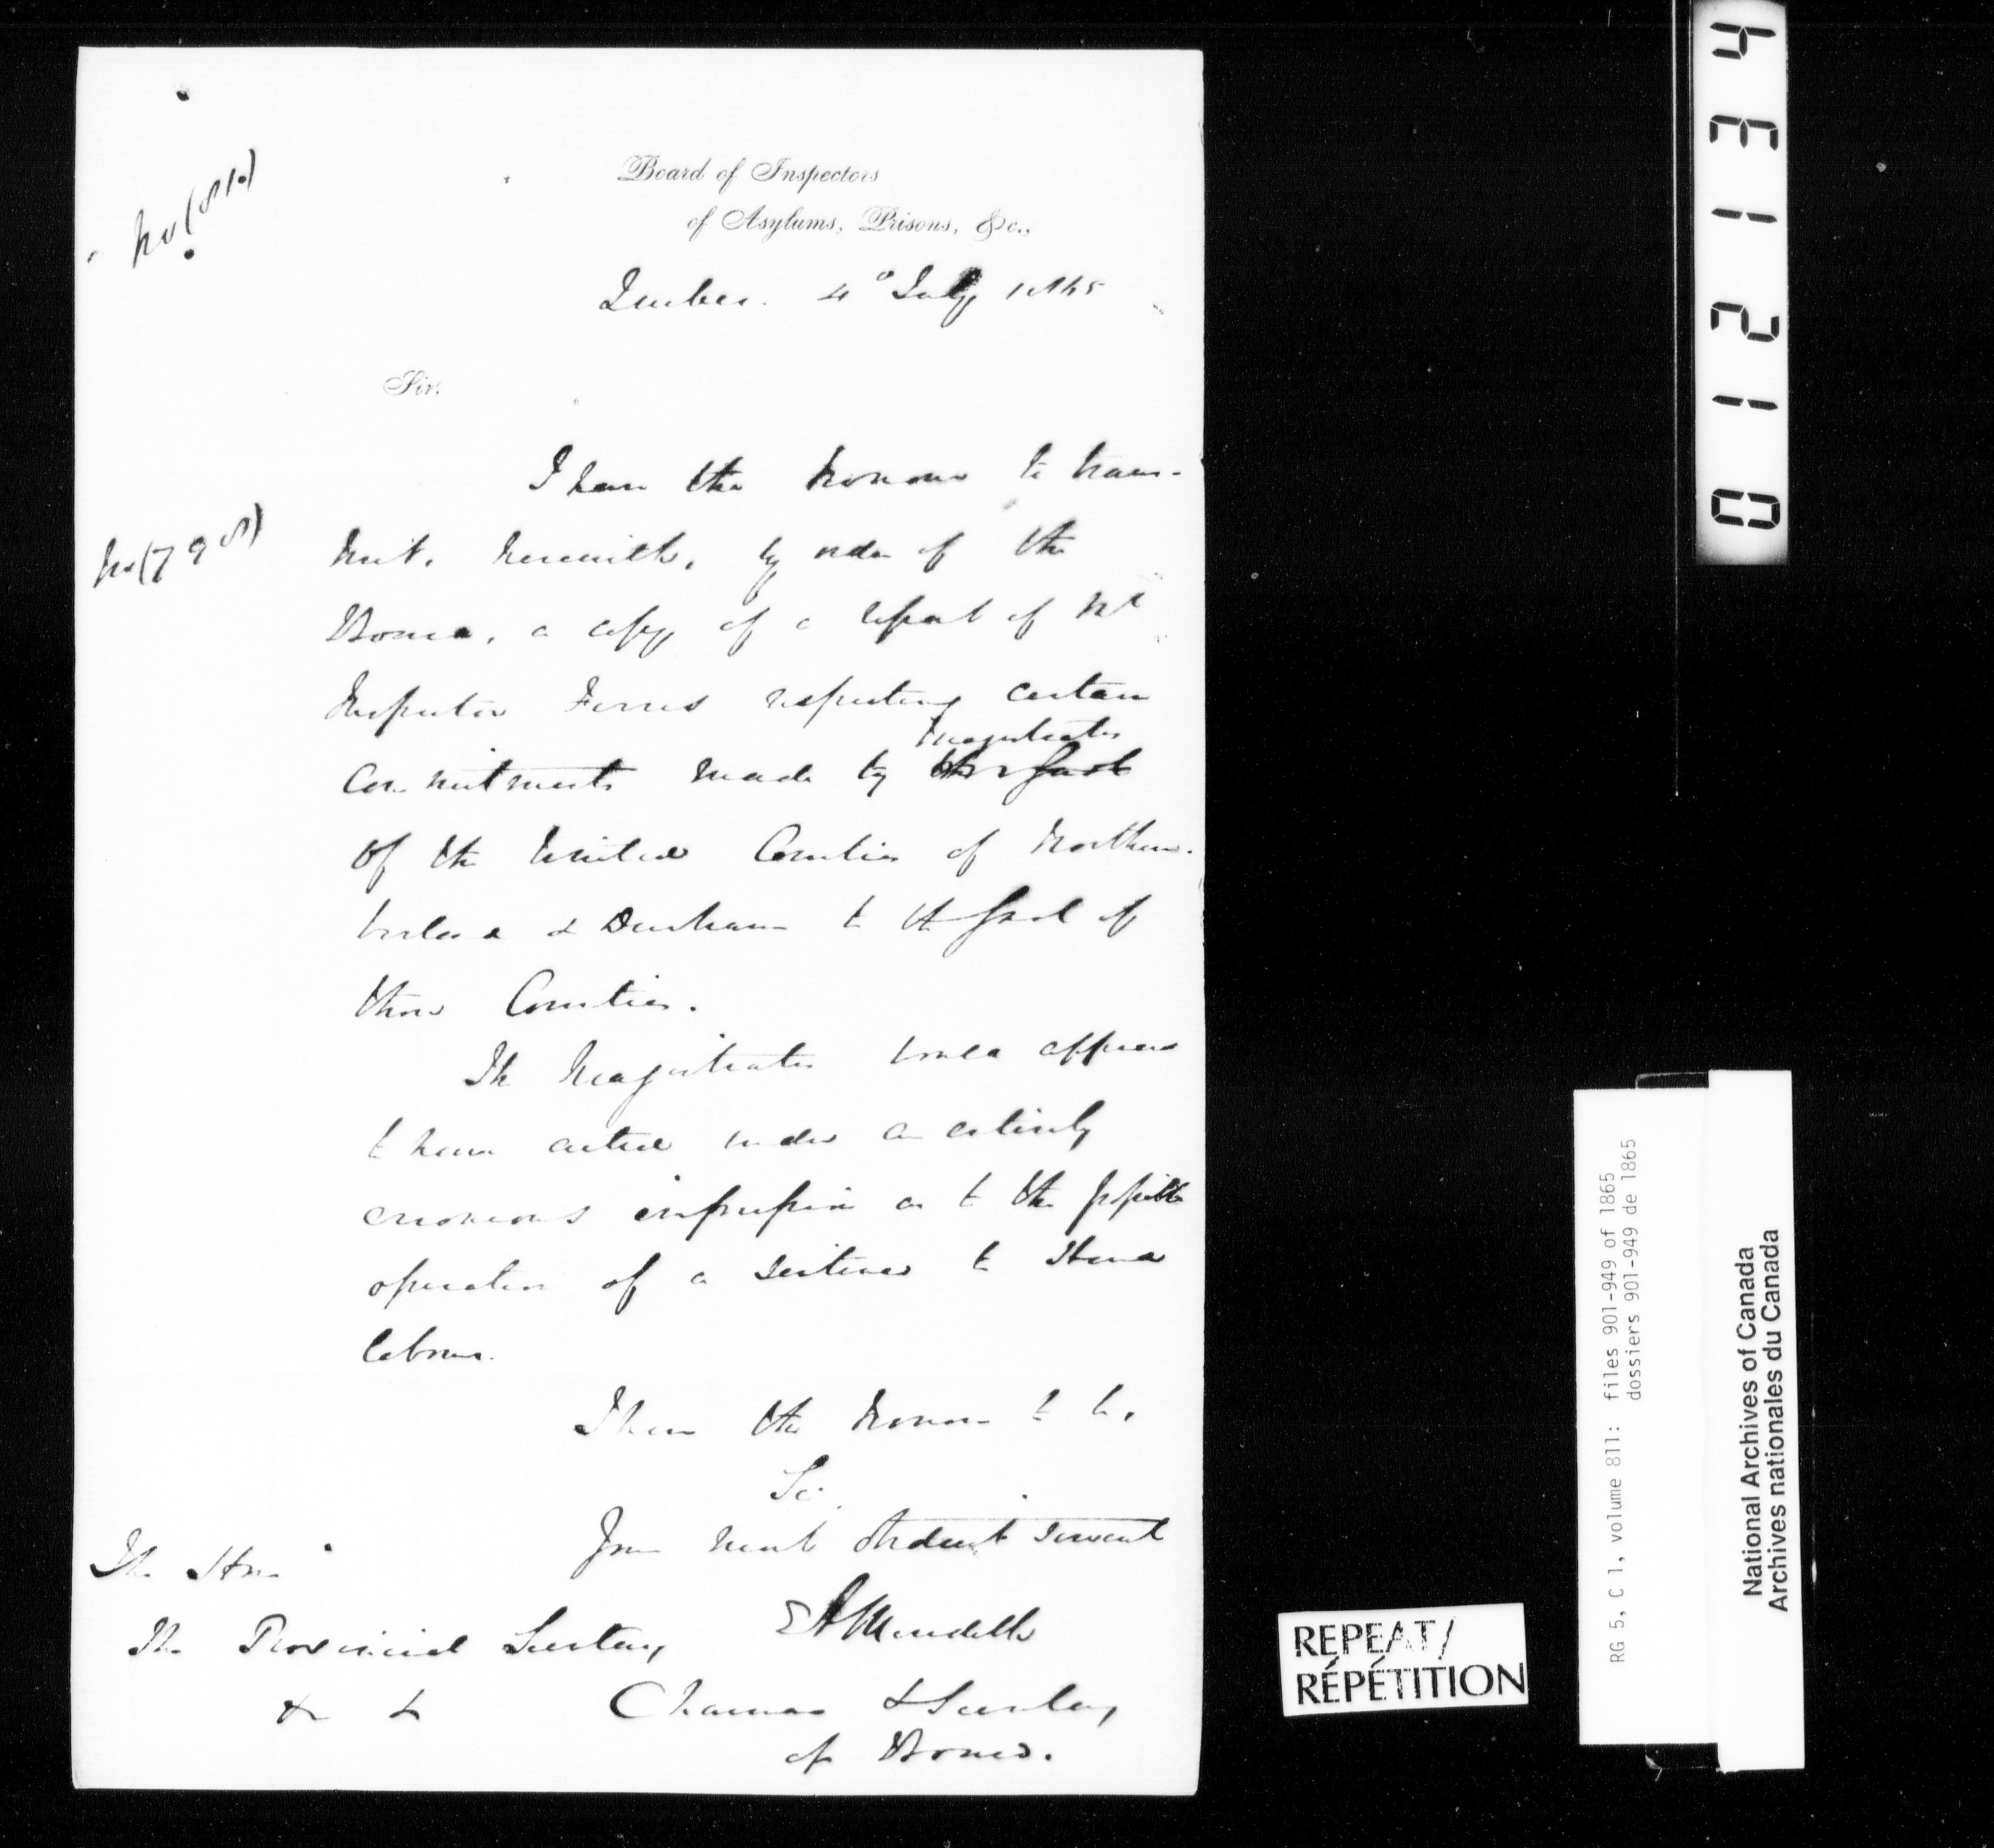 No (81.)
Board of Inspectors
of Asylums, Prisons, &c.,
Quebec. 4° July 1865
Sir,
I have the honour to trans-
No (798)
mit, herewith, by order of the
Board, a copy of a report of Mr
Inspector Ferres respecting certain
magistrates
commitments made by the Gaol
of the United Counties of Northum-
berland & Durham to the Gaol of
those Counties.
The Magistrates would appear
to have acted under an entirely
erroneous impression as to the
operation of a sentence to Hard
labour.
I have the honour to be,
Sir
Your most obedient servant
EA Meredith
Chairman & Secretary
of Board.
The Hon.
The Provincial Secretary
&c &c
0 1 2 1 3 4
REPEAT/
RÉPÉTITION
RG 5, C 1, volume 811: files 901-949 of 1865
dossiers 901-949 de 1865
National Archives of Canada
Archives nationales du Canada